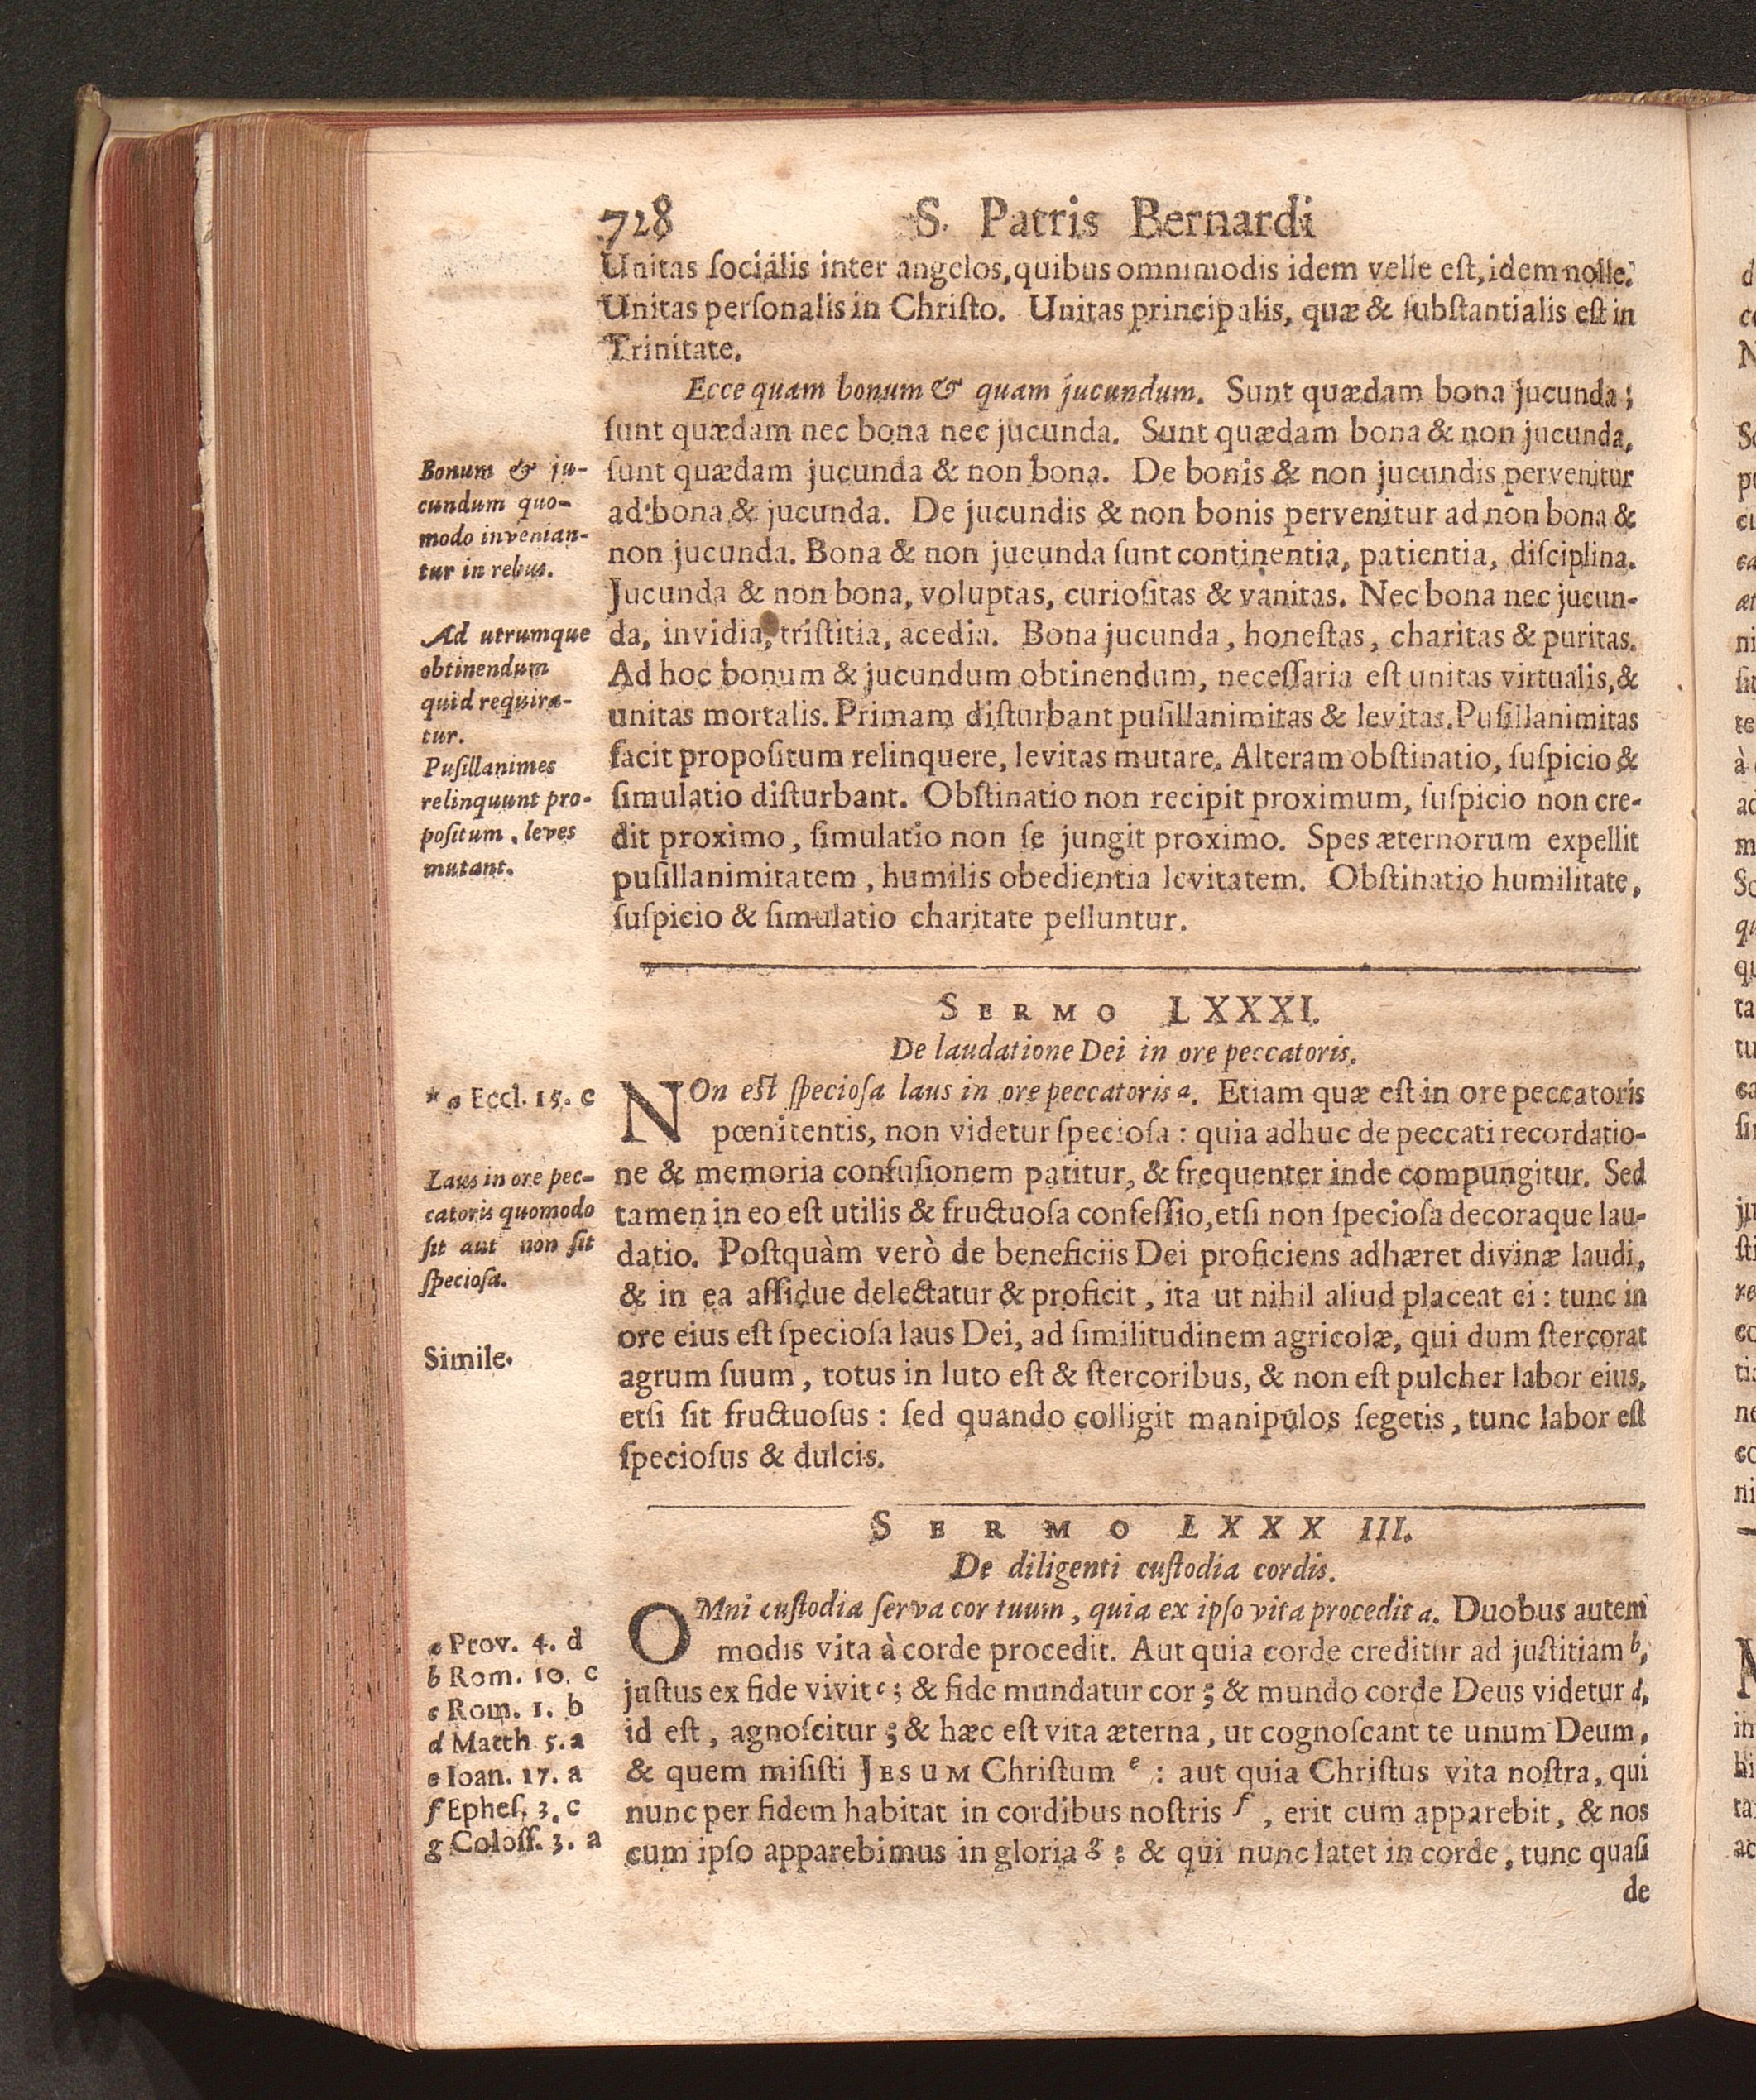 728 S. Patris Bernardi
Unitas ſocialis inter angelos, quibus omnimodis idem velle eſt, idem nolle.
Unitas perſonalis in Chriſto. Unitas principalis, quæ & ſubſtantialis eſt in
Trinitate.
Ecce quam bonum & quam jucundum. Sunt quædam bona jucunda;
ſunt quædam nec bona nec jucunda. Sunt quædam bona & non jucunda,
ſunt quædam jucunda & non bona. De bonis & non jucundis pervenitur
ad bona & jucunda. De jucundis & non bonis pervenitur ad non bona &
non jucunda. Bona & non jucunda ſunt continentia, patientia, diſciplina.
Jucunda & non bona, voluptas, curioſitas & vanitas. Nec bona nec jucun-
da, invidia, triſtitia, acedia. Bona jucunda, honeſtas, charitas & puritas.
Ad hoc bonum & jucundum obtinendum, neceſſaria eſt unitas virtualis, &
unitas mortalis. Primam diſturbant puſillanimitas & levitas. Puſillanimitas
facit propoſitum relinquere, levitas mutare. Alteram obſtinatio, ſuſpicio &
ſimulatio diſturbant. Obſtinatio non recipit proximum, ſuſpicio non cre-
dit proximo, ſimulatio non ſe jungit proximo. Spes æternorum expellit
puſillanimitatem, humilis obedientia levitatem. Obſtinatio humilitate,
ſuſpicio & ſimulatio charitate pelluntur.
Bonum & ju-
cundum quo-
modo invenian-
tur in rebus.
Ad utrumque
obtinendum
quid requira-
tur.
Puſillanimes
relinquunt pro-
poſitum, leves
mutant.
SERMO LXXXI.
De laudatione Dei in ore peccatoris.
NOn eſt ſpecioſa laus in ore peccatoris a. Etiam quæ eſt in ore peccatoris
pœnitentis, non videtur ſpecioſa: quia adhuc de peccati recordatio-
ne & memoria confuſionem patitur, & frequenter inde compungitur. Sed
tamen in eo eſt utilis & fructuoſa confeſſio, etſi non ſpecioſa decoraque lau-
datio. Poſtquàm verò de beneficiis Dei proficiens adhæret divinæ laudi,
& in ea aſſidue delectatur & proficit, ita ut nihil aliud placeat ei: tunc in
ore eius eſt ſpecioſa laus Dei, ad ſimilitudinem agricolæ, qui dum ſtercorat
agrum ſuum, totus in luto eſt & ſtercoribus, & non eſt pulcher labor eius,
etſi ſit fructuoſus: ſed quando colligit manipulos ſegetis, tunc labor eſt
ſpecioſus & dulcis.
* a Eccl. 15. c
Laus in ore pec-
catoris quomodo
ſit aut non ſit
ſpecioſa.
Simile.
SERMO LXXXIII.
De diligenti cuſtodia cordis.
OMni cuſtodia ſerva cor tuum, quia ex ipſo vita procedit a. Duobus autem
modis vita à corde procedit. Aut quia corde creditur ad juſtitiam b,
juſtus ex fide vivit c; & fide mundatur cor; & mundo corde Deus videtur d,
id eſt, agnoſcitur; & hæc eſt vita æterna, ut cognoſcant te unum Deum,
& quem miſiſti JESUM Chriſtum e: aut quia Chriſtus vita noſtra, qui
nunc per fidem habitat in cordibus noſtris f, erit cum apparebit, & nos
cum ipſo apparebimus in gloria g: & qui nunc latet in corde, tunc quaſi
de
a Prov. 4. d
b Rom. 10. c
c Rom. 1. b
d Matth 5. a
e Ioan. 17. a
f Epheſ. 3. c
g Coloſſ. 3. a